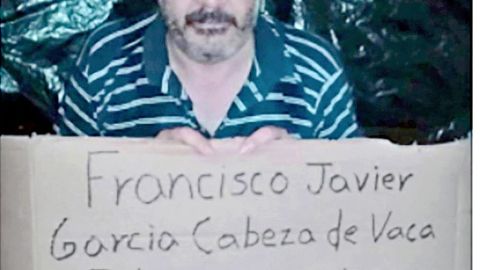 Francisco Javier
Garcia Cabeza de Vaca